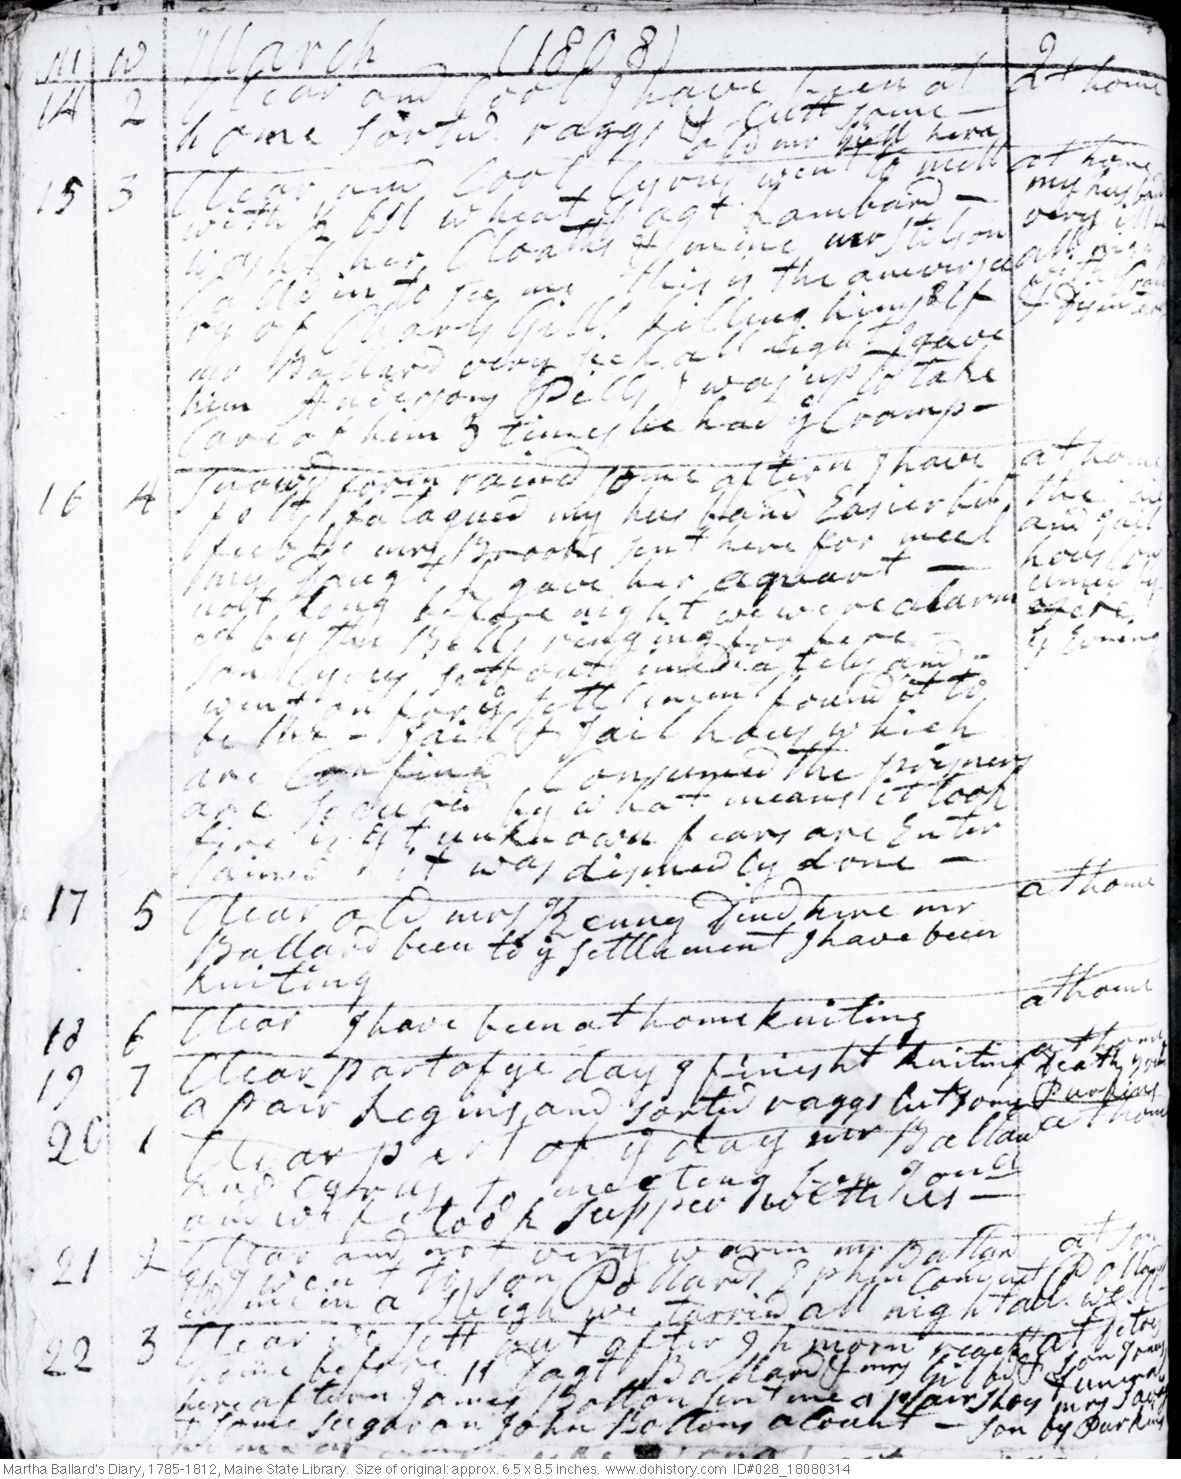 m w March (1808) 2
14 2 Clear and Cool I have been at at home
home sortd raggs & Cutt some
old mr Gill here
15 3 Clear and Cool Cyrus went to mill at home
with wheat Dagt Lambard my husband
washt her Cloaths & mine mrs Stilson very ill
Calld in to see me this is the aniversa all night
ry of Charls Gill killing himself with Cramp
mr Ballard very sick all night I gave &
him Andersons Pills I was up to take
Care of him 3 times he had ye Cramp
16 4 Snowd forn raind some aftern I have at home
felt fatagued my husband Easier but the jail
feeble mrs Brooks sent here for meel and jail
I gave her a quart house con
not long before night we were alarm sumed by
ed by the Bells ringing for fire fire
son Cyrus sett out imediately and ye Evening
went on for ye settlement found it to
be the Jaill & Jail hous which
are Confind Consumed the prisners
are secured by what means it took
fire is yt unknown fears are Enter
taind it was disinedly done
17 5 Clear old mrs Kenny Dind here mr at home
Ballard been to ye settlement I have been
kniting
18 6 Clear I have been at home kniting at home
19 7 Clear part of ye day I finisht kniting at home
a pair Legins and sortd raggs Cut some Death
Purkins
20 1 Clear part of ye day mr Ballard at home
and Cyrus to meeting son Jona
and wife took supper with us
21 2 Clear and not very warm mr Ballard at son
& I went to son Pollards Ephm Convei Pollards
ed me in a sleigh we tarried all night all well
22 3 Clear we sett out after 9 h morn reacht
home before 11 Dagt Ballard & mrs Gilbert son Jonas
here aftern James Botton sent me a pair shoes Funeral
& some sugar on John Bottons acount son by Purkins
Martha Ballard's Diary, 1785-1812, Maine State Library. Size of original: approx. 6.5 x 8.5 inches. www.dohistory.com ID#028_18080314